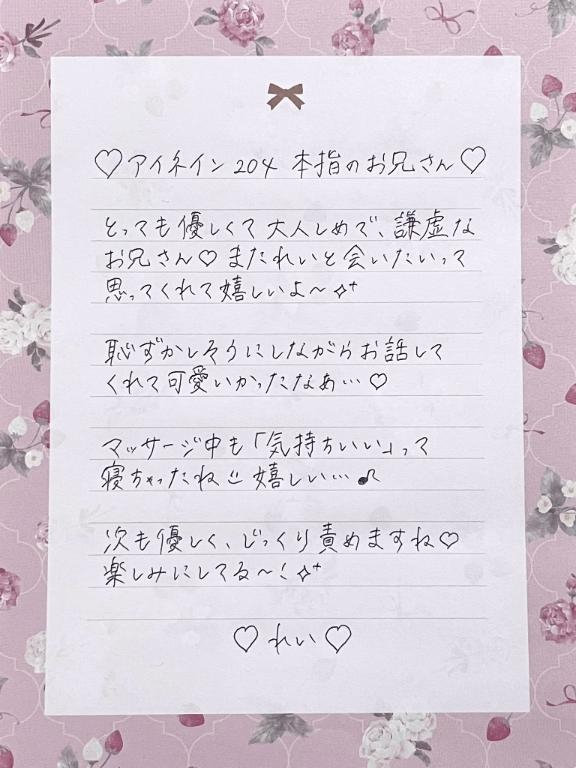 ♡アイネイン204 本指のお兄さん♡
とっても優しくて大人しめで、謙虚な
お兄さん♡またれいと会いたいって
思ってくれて嬉しいよ～✧⁺
恥ずかしそうにしながらお話して
くれて可愛いかったなぁ…♡
マッサージ中も「気持ちいい」って
寝ちゃったね 嬉しい…♪
次も優しく、じっくり責めますね♡
楽しみにしてる～！✧⁺
♡れい♡